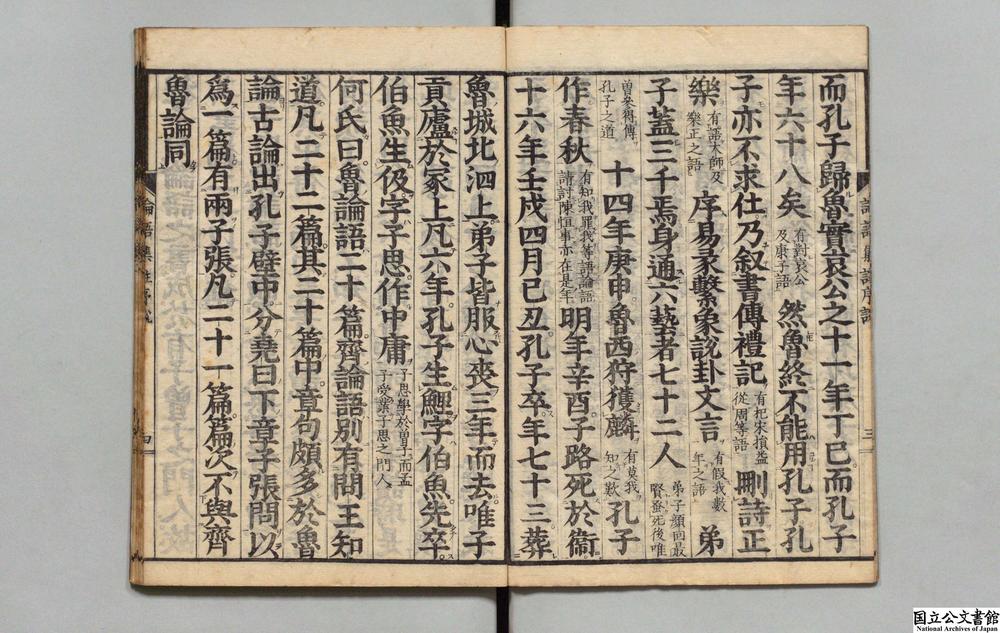 論語集註序說
三
而孔子歸魯實哀公之十一年丁巳而孔子
年六十八矣有對哀公及康子語然魯終不能用孔子孔
子亦不求仕乃叙書傳禮記有杞宋損益從周等語刪詩正
樂有語大師及樂正之語序易彖繫象說卦文言有假我數年之語弟
子蓋三千焉身通六藝者七十二人弟子顏回最賢蚤死後唯
曽參得傳孔子之道十四年庚申魯西狩獲麟有莫我知之歎孔子
作春秋有知我罪我等語論語請討陳恒事亦在是年明年辛酉子路死於衞
十六年壬戌四月己丑孔子卒年七十三葬
魯城北泗上弟子皆服心喪三年而去唯子
貢廬於冢上凡六年孔子生鯉字伯魚先卒
伯魚生伋字子思作中庸子思學於曽子而孟子受業子思之門人
何氏曰魯論語二十篇齊論語別有問王知
道凡二十二篇其二十篇中章句頗多於魯
論古論出孔子壁中分堯曰下章子張問以
爲一篇有兩子張凡二十一篇篇次不與齊
魯論同
論語集註序說
四
国立公文書館
National Archives of Japan